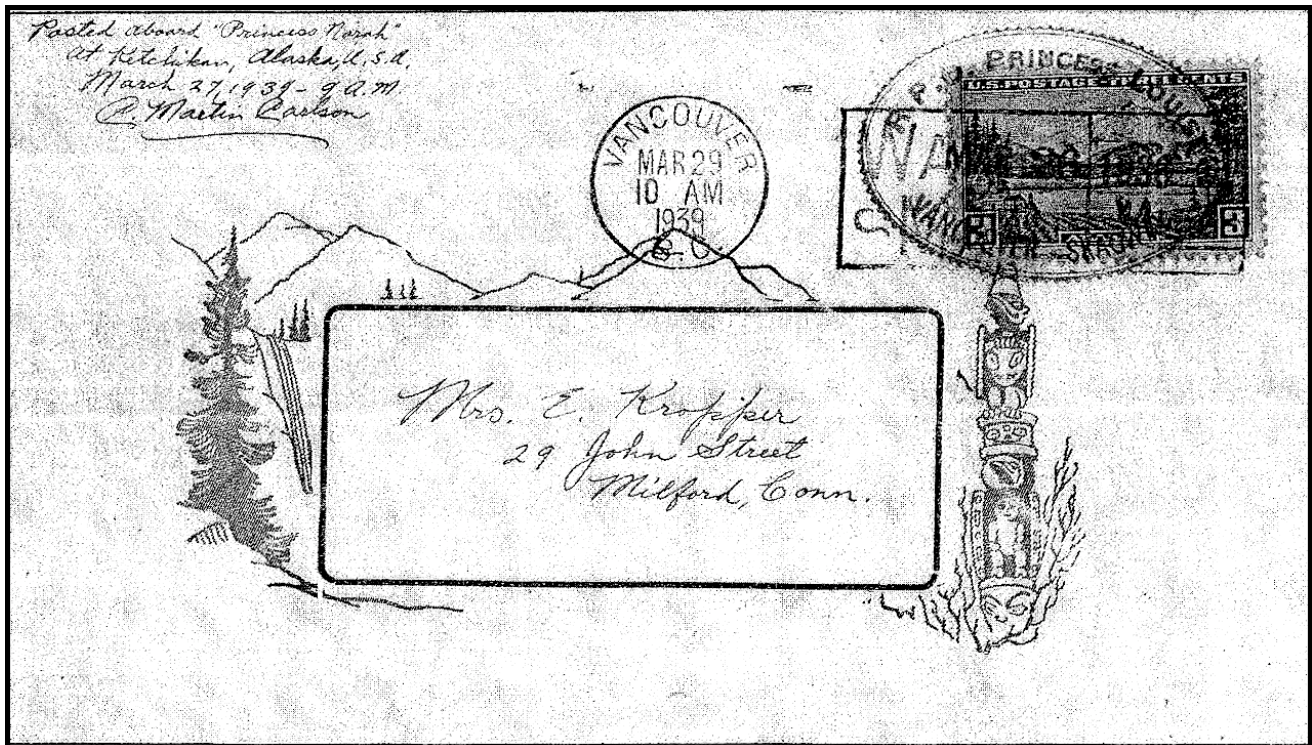 Posted aboard "Princess Norah"
At Ketchikan, Alaska, U.S.A.
March 27, 1939 - 9 A.M.
C. Martin Carlson
VANCOUVER
MAR 29
10 AM
1939
B.C.
R.P.O. PRINCESS LOUISE
VANCOUVER SKAGWAY
U.S. POSTAGE - THREE CENTS
3 3
Mrs. E. Kropper
29 John Street
Milford, Conn.